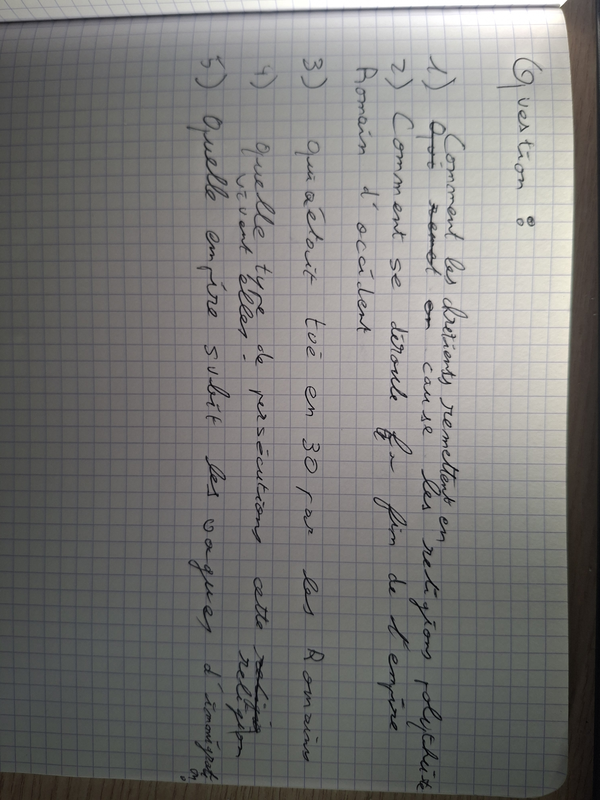 Question :
1) Comment les chretients remettent en
en cause les religions polythéite
2) Comment se déroule la fin de l'empire
Romain d'occident
3) qui a était tué en 30 par les Romains
4) quelle type de persécutions cette religion
vivent elles.
5) Quelle empire subit les vagues d'immigration